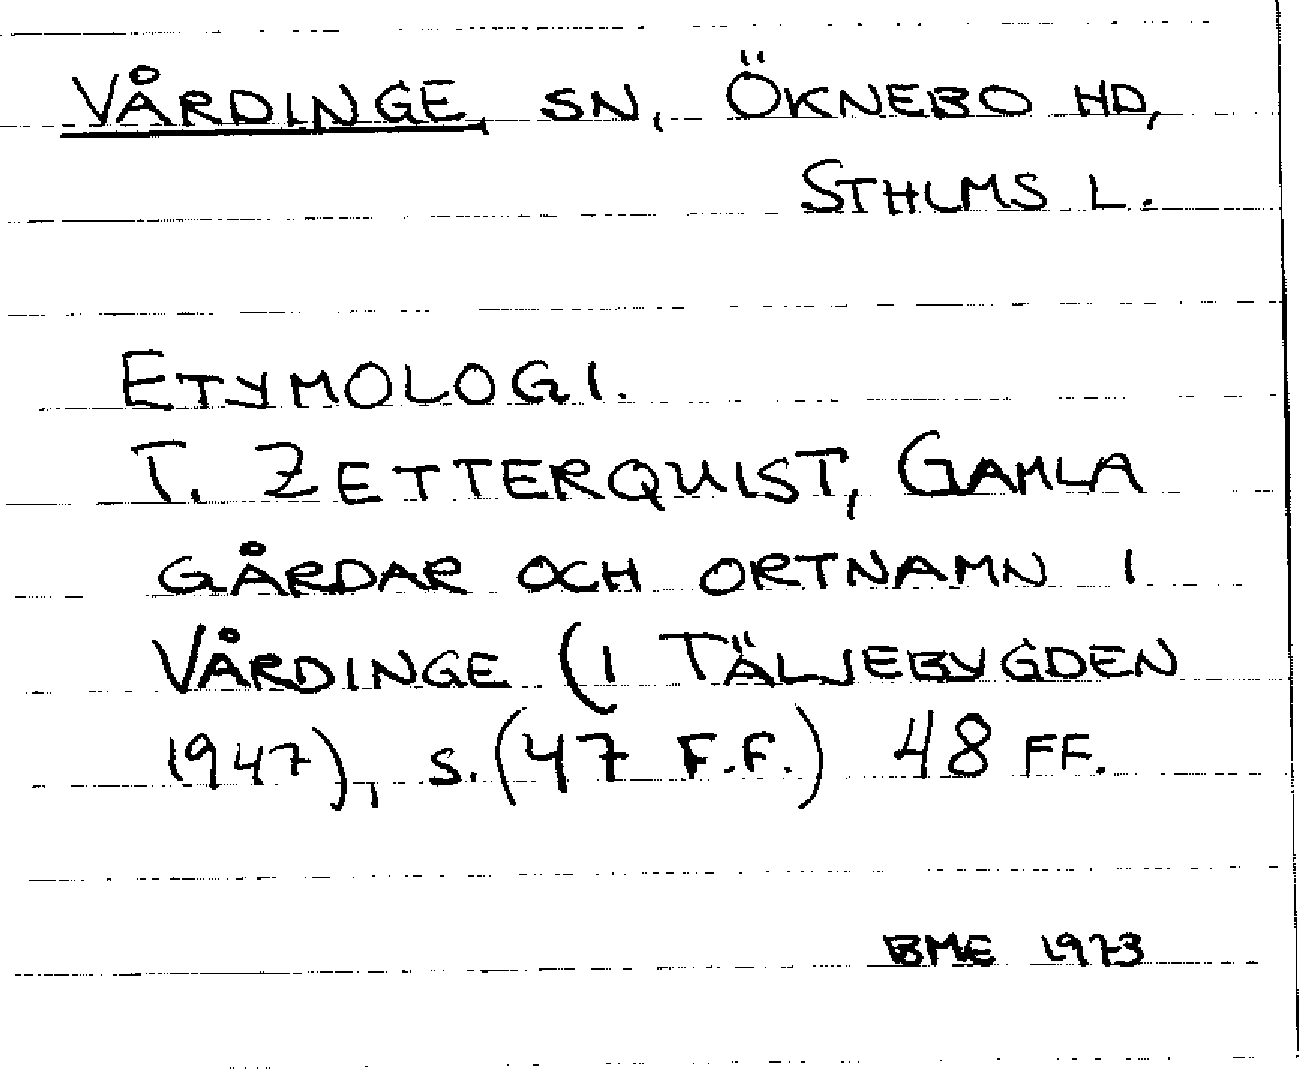 VÅRDINGE, SN, ÖKNEBO HD,
STHLMS L.
ETYMOLOGI.
T. ZETTERQUIST, GAMLA
GÅRDAR OCH ORTNAMN I
VÅRDINGE (I TÄLJEBYGDEN
1947), S. (47 F.F.) 48 FF.
BME 1973